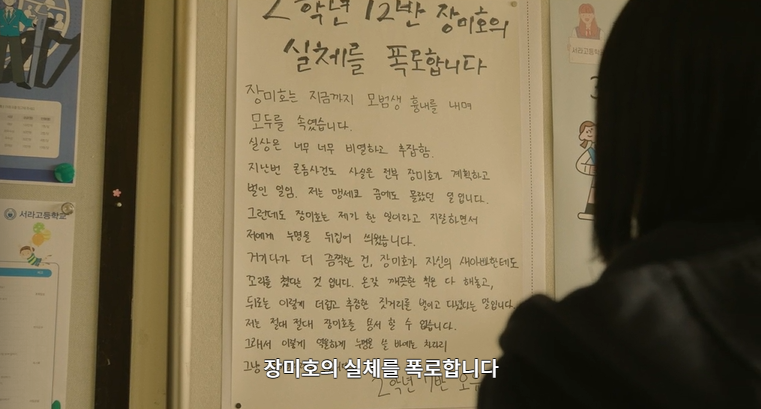 2학년 12반 장미호의
실체를 폭로합니다
장미호는 지금까지 모범생 흉내를 내며
모두를 속였습니다.
실상은 너무 너무 비열하고 추잡함.
지난번 본드사건도 사실은 전부 장미호가 계획하고
벌인 일임. 저는 맹세코 꿈에도 몰랐던 일입니다.
그런데도 장미호는 제가 한 일이라고 지랄하면서
저에게 누명을 뒤집어 씌웠습니다.
거기다가 더 끔찍한 건, 장미호가 자신의 새아빠한테도
꼬리를 쳤다는 것 입니다. 온갖 깨끗한 척은 다 해놓고,
뒤로는 이렇게 더럽고 추잡한 짓거리를 벌이고 다녔다는 말입니다.
저는 절대 절대 장미호를 용서 할 수 없습니다.
그래서 이렇게 억울하게 누명을 쓸 바에는 차라리
그냥
2학년 7반 오
서라고등학교
서라고등학교
장미호의 실체를 폭로합니다